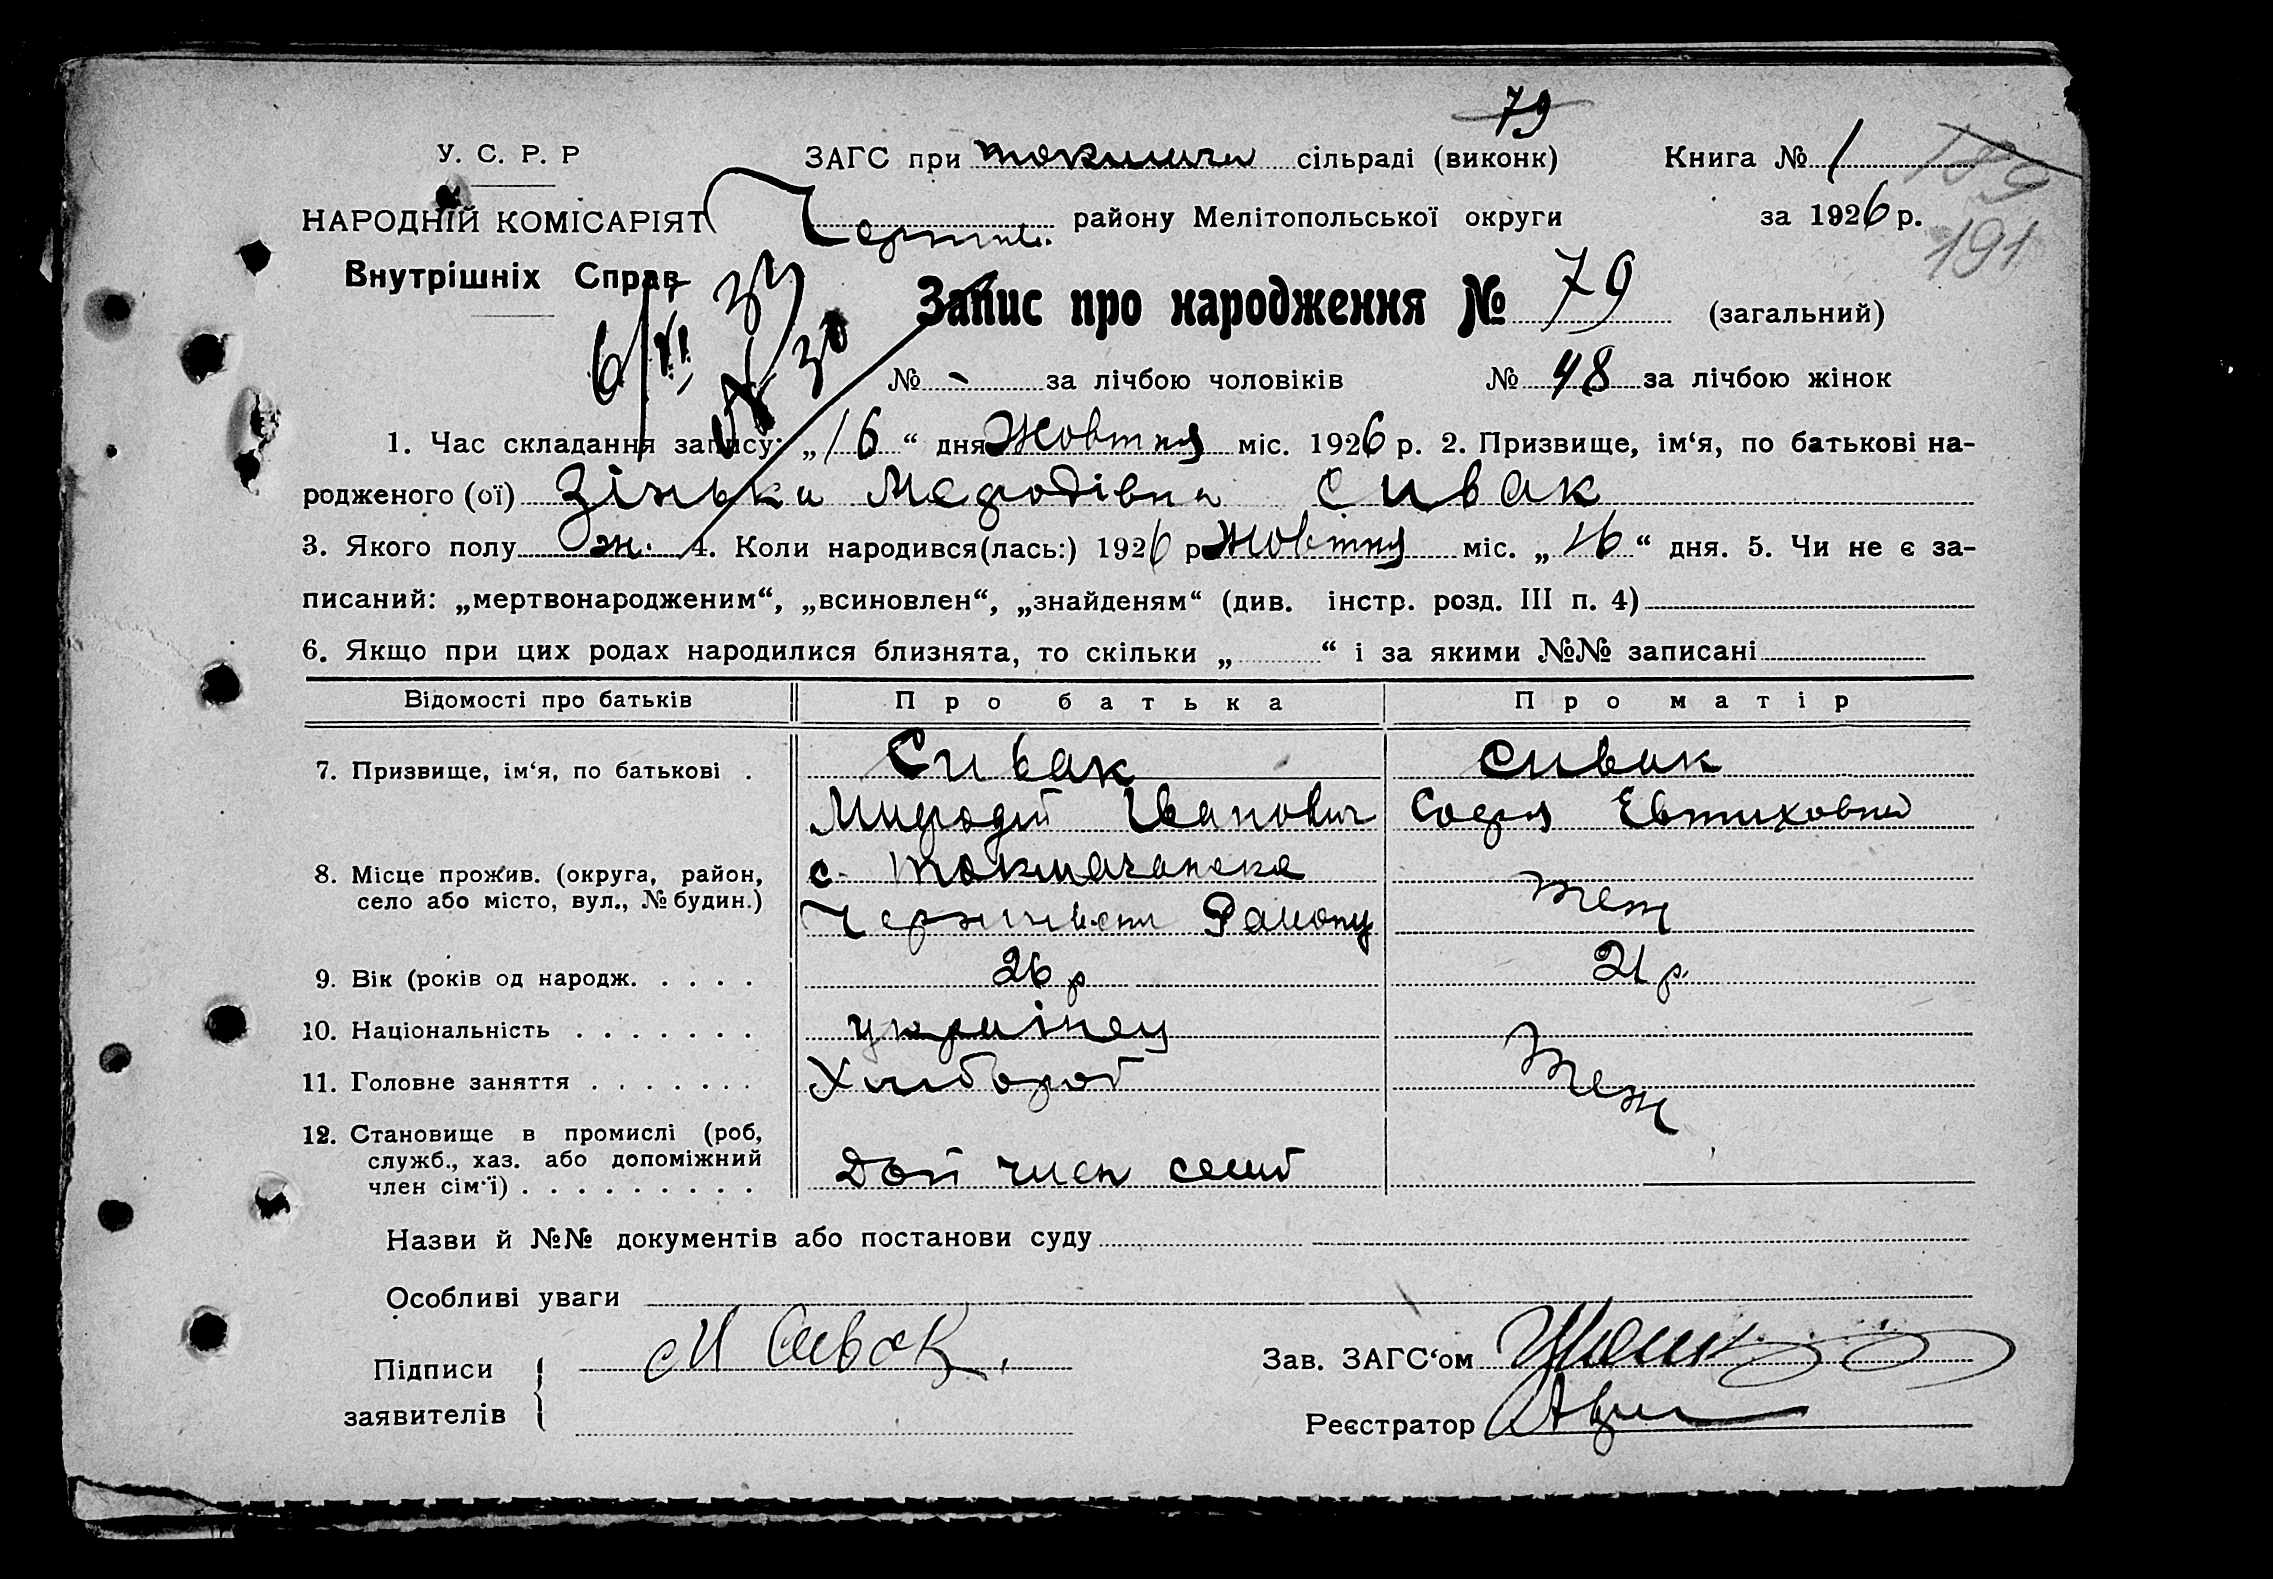 79
У. С. Р. Р
ЗАГС при Токмача сільраді (виконк)
Книга № 1
189
НАРОДНІЙ КОМІСАРІЯТ
Черниг. району Мелітопольської округи
за 1926 р.
191
Внутрішніх Справ
Запис про народження № 79 (загальний)
6/VI
30
№ - за лічбою чоловіків
№ 48 за лічбою жінок
1. Час складання запису: „16“ дня Жовтня міс. 1926 р. 2. Призвище, ім‘я, по батькові на-
родженого (ої) Зінька Мефодівна Сивак
3. Якого полу ж. 4. Коли народився(лась:) 1926 р Жовтня міс. „16“ дня. 5. Чи не є за-
писаний: „мертвонародженим“, „всиновлен“, „знайденям“ (див. інстр. розд. III п. 4)
6. Якщо при цих родах народилися близнята, то скільки „ “ і за якими №№ записані
Відомості про батьків
Про батька
Про матір
7. Призвище, ім‘я, по батькові .
Сивак
Сивак
Мифодій Іванович
Софія Евтиховна
8. Місце прожив. (округа, район,
село або місто, вул., № будин.)
с. Токмачанска
Району
теж
9. Вік (років од народж. . . . .
26 р
21 р.
10. Національність . . . . . . .
українец
11. Головне заняття . . . . . . .
Хлибороб
теж
12. Становище в промислі (роб,
служб., хаз. або допоміжний
член сім‘ї) . . . . . . . . .
Доп член семї
Назви й №№ документів або постанови суду
Особливі уваги
Підписи
заявителів
М Сивак
Зав. ЗАГС‘ом
Реєстратор